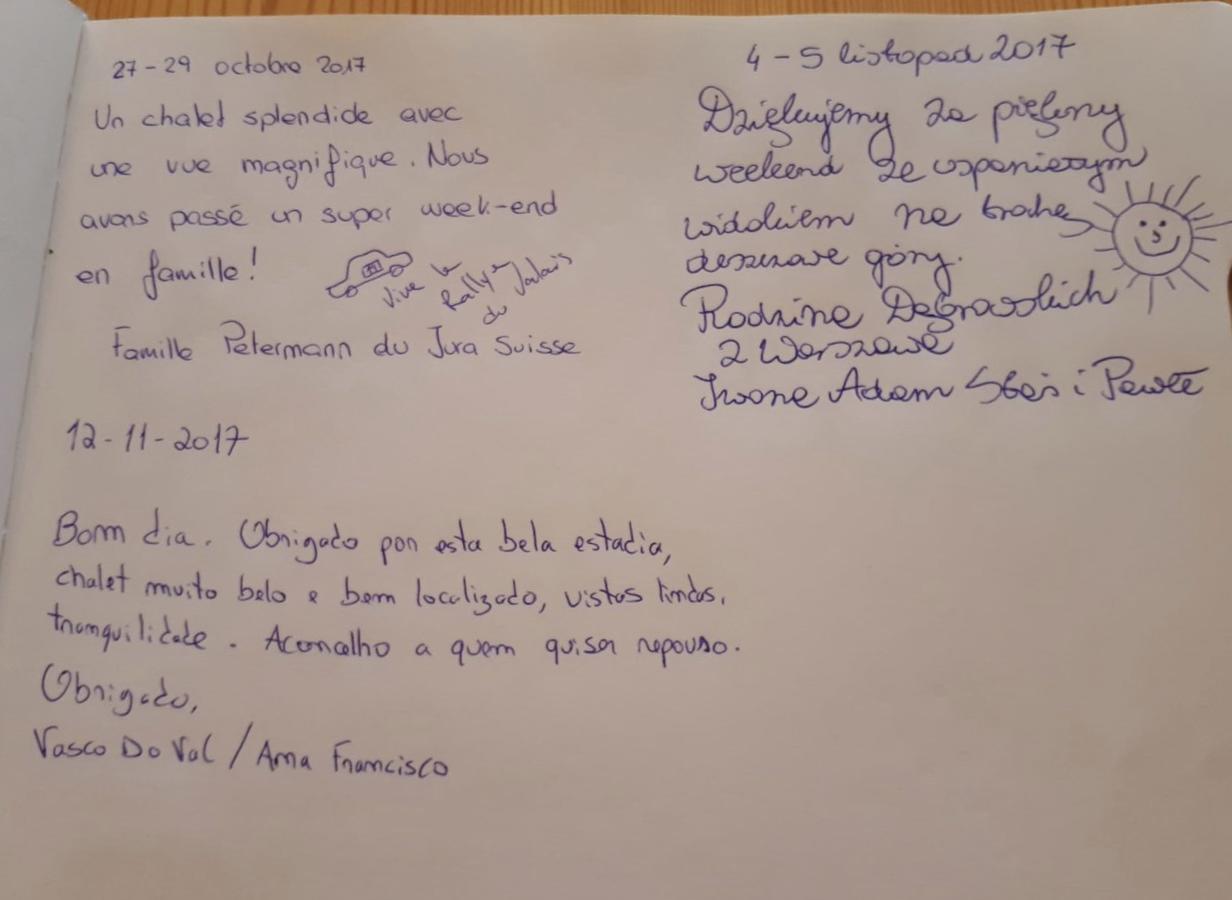 27-29 octobre 2017
Un chalet splendide avec
une vue magnifique. Nous
avons passé un super week-end
en famille!
Vive le
Rallye
du Valais
Famille Petermann du Jura Suisse
4-5 listopad 2017
Dziękujemy za piękny
weekend ze wspaniałym
widokiem na trochę
deszczowe góry.
Rodzina Dąbrowskich
z Warszawy
Iwona Adam Staś i Paweł
12-11-2017
Bom dia. Obrigado por esta bela estadia,
chalet muito belo e bem localizado, vistas lindas,
tranquilidade. Aconcelho a quem quiser repouso.
Obrigado,
Vasco Do Val / Ana Francisco